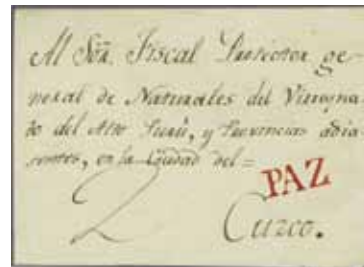 Al Sõr. Fiscal Protector ge-
neral de Naturales del Virreyna
to del Alto Perú, y Provincias adia
centes, en la Ciudad del =
PAZ
Cuzco.